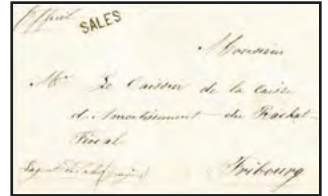 SALES
Monsieur
Mr Le Caissier de la Caisse
d'Amortissement du Rachat
Fiscal
Fribourg